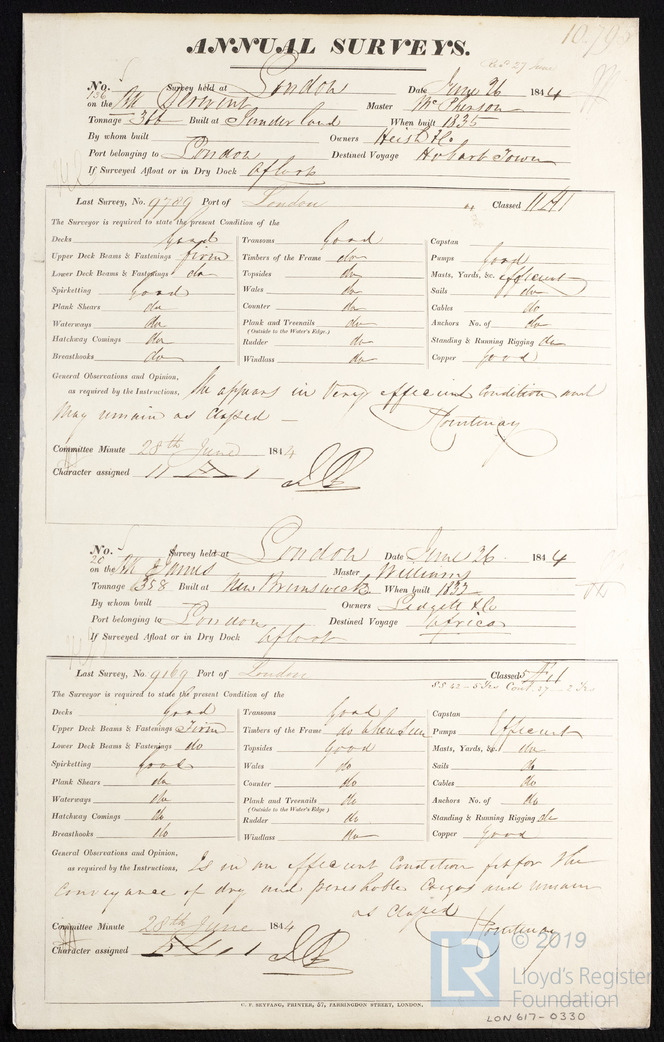 10.79
ANNUAL SURVEYS.
No. 136 Survey held at London Date June 26 1844
on the Derwent Master McPherson
Tonnage 366 Built at Sunderland When built 1835
By whom built Owners Heish & Co
Port belonging to London Destined Voyage Hobart Town
If Surveyed Afloat or in Dry Dock Afloat
Last Survey, No. 9789 Port of London Classed 11 A 1
The Surveyor is required to state the present Condition of the
Decks Good Transoms Good Capstan
Upper Deck Beams & Fastenings firm Timbers of the Frame do Pumps Good
Lower Deck Beams & Fastenings do Topsides do Masts, Yards, &c. efficient
Spirketting Good Wales do Sails do
Plank Shears do Counter do Cables do
Waterways do Plank and Treenails do Anchors No. of do
(Outside to the Water's Edge.)
Hatchway Comings do Rudder do Standing & Running Rigging do
Breasthooks do Windlass do Copper Good
General Observations and Opinion,
as required by the Instructions, She appears in Very efficient Condition and
May remain as Classed
Courtenay
Committee Minute 28th June 1844
Character assigned 11 A 1
No. 20 Survey held at London Date June 26 1844
on the St James Master Williams
Tonnage 358 Built at New Brunswick When built 1832
By whom built Owners Lidgett & Co
Port belonging to London Destined Voyage Africa
If Surveyed Afloat or in Dry Dock Afloat
Last Survey, No. 9169 Port of London Classed 5 Æ 1
SS 42 - 5 Yrs Cont. 27 - 2 Yrs
The Surveyor is required to state the present Condition of the
Decks Good Transoms Good Capstan
Upper Deck Beams & Fastenings Firm Timbers of the Frame do when seen Pumps Efficient
Lower Deck Beams & Fastenings do Topsides Good Masts, Yards, &c. do
Spirketting Good Wales do Sails do
Plank Shears do Counter do Cables do
Waterways do Plank and Treenails do Anchors No. of do
(Outside to the Water's Edge)
Hatchway Comings do Rudder do Standing & Running Rigging do
Breasthooks do Windlass do Copper Good
General Observations and Opinion,
as required by the Instructions, Is in an efficient Condition fit for the
Conveyance of dry and perishable Cargos and remain
as Classed Courtenay
Committee Minute 28th June 1844
Character assigned
C. F. SEYFANG, PRINTER, 57, FARRINGDON STREET, LONDON.
LR © 2019
Lloyd's Register
Foundation
LON 617-0330